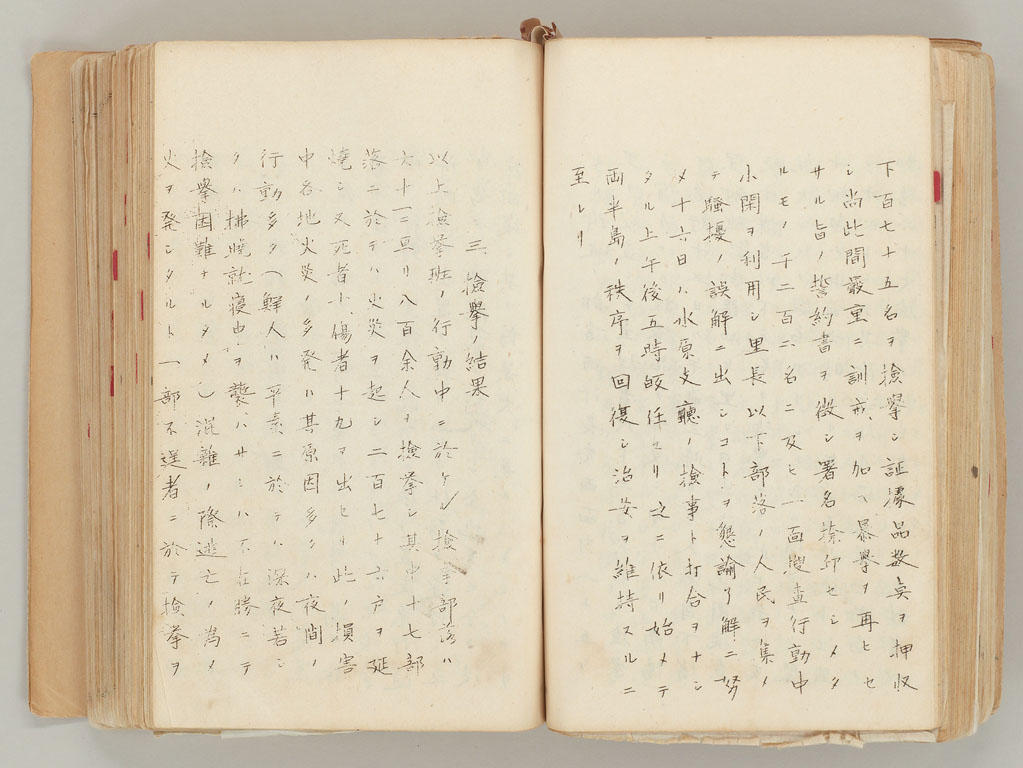 下百七十五名ヲ検挙シ証憑品数点ヲ押収
シ尚此間厳重ニ訓戒ヲ加ヘ暴挙ヲ再ヒセ
サル旨ノ誓約書ヲ徴シ署名捺印セシメタ
ルモノ千二百二名ニ及ヒ一面捜査行動中
小閑ヲ利用シ里長以下部落ノ人民ヲ集メ
テ騒擾ノ誤解ニ出シコトヲ懇諭了解ニ努
メ十六日ハ水原支廳ノ検事ト打合ヲナシ
タル上午後五時皈任セリ之ニ依リ始メテ
両半島ノ秩序ヲ回復シ治安ヲ維持スルニ
至レリ
三、検挙ノ結果
以上検挙班ノ行動中ニ於ケル検挙部落ハ
六十二亘リ八百余人ヲ検挙シ其中十七部
落ニ於テハ火災ヲ起シ二百七十六戸ヲ延
焼シ又死者小傷者十九ヲ出セリ此ノ損害
中各地火災ノ多発ハ其原因多クハ夜間ノ
行動多ク(鮮人ハ平素ニ於テハ深夜若シ
クハ拂暁就寝中ヲ襲ハサレハ不在勝ニテ
検挙困難ナルタメ)混雑ノ際逃亡ノ為メ
火ヲ発シタルト一部不逞者ニ於テ検挙ヲ